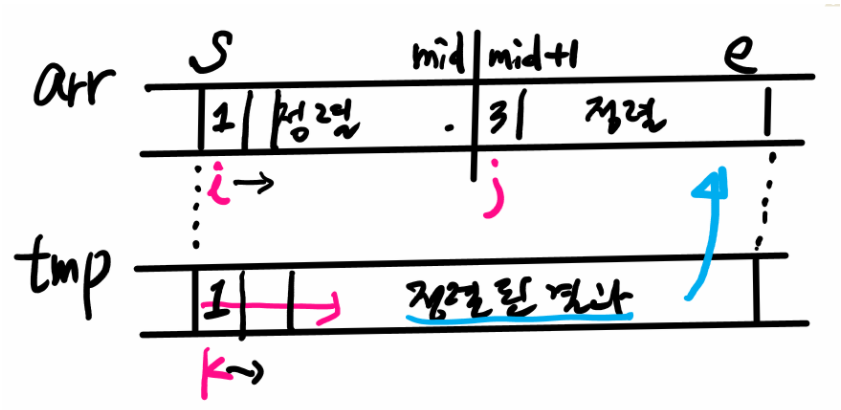 S mid mid+1 e
arr 1 정렬 . 3 정렬
i → j
tmp 1 정렬된 결과
k →